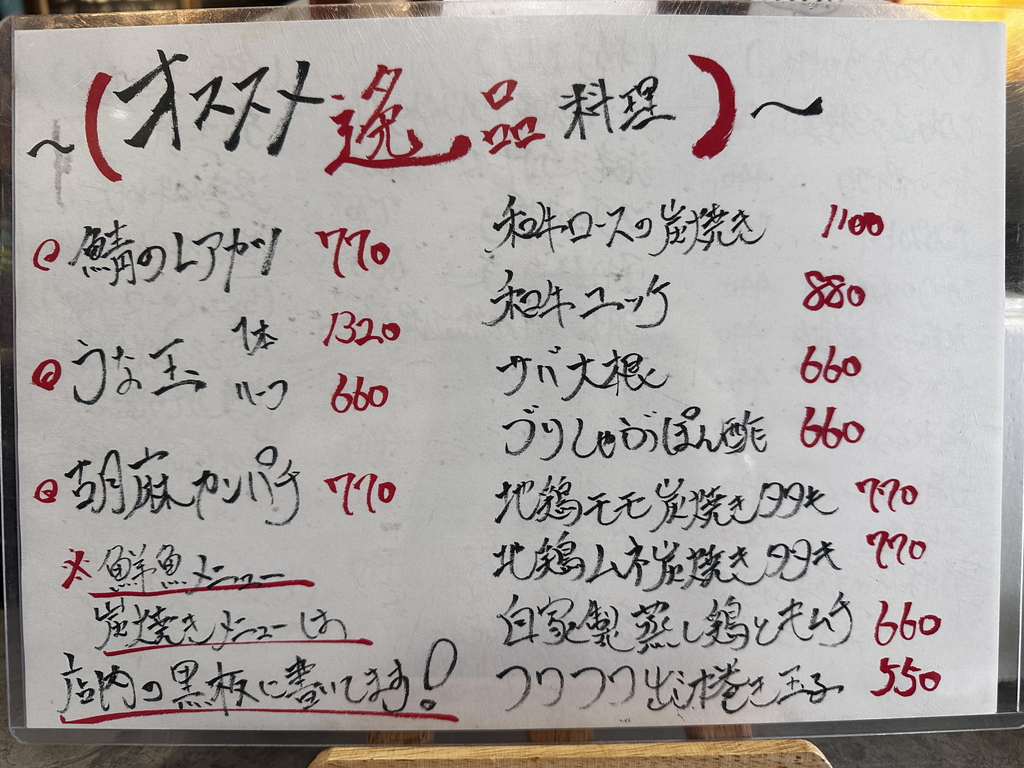 ～(オススメ逸品料理)～
鯖のレアカツ 770
うな玉 1本 1320
ハーフ 660
胡麻カンパチ 770
※鮮魚メニュー
炭焼きメニューは
店内の黒板に書いてます!
和牛ロースの炭焼き 1100
和牛ユッケ 880
サバ大根 660
ブリしゃぶぽん酢 660
地鶏モモ炭焼きタタキ 770
地鶏ムネ炭焼きタタキ 770
自家製蒸し鶏とキムチ 660
フワフワ出汁巻き玉子 550